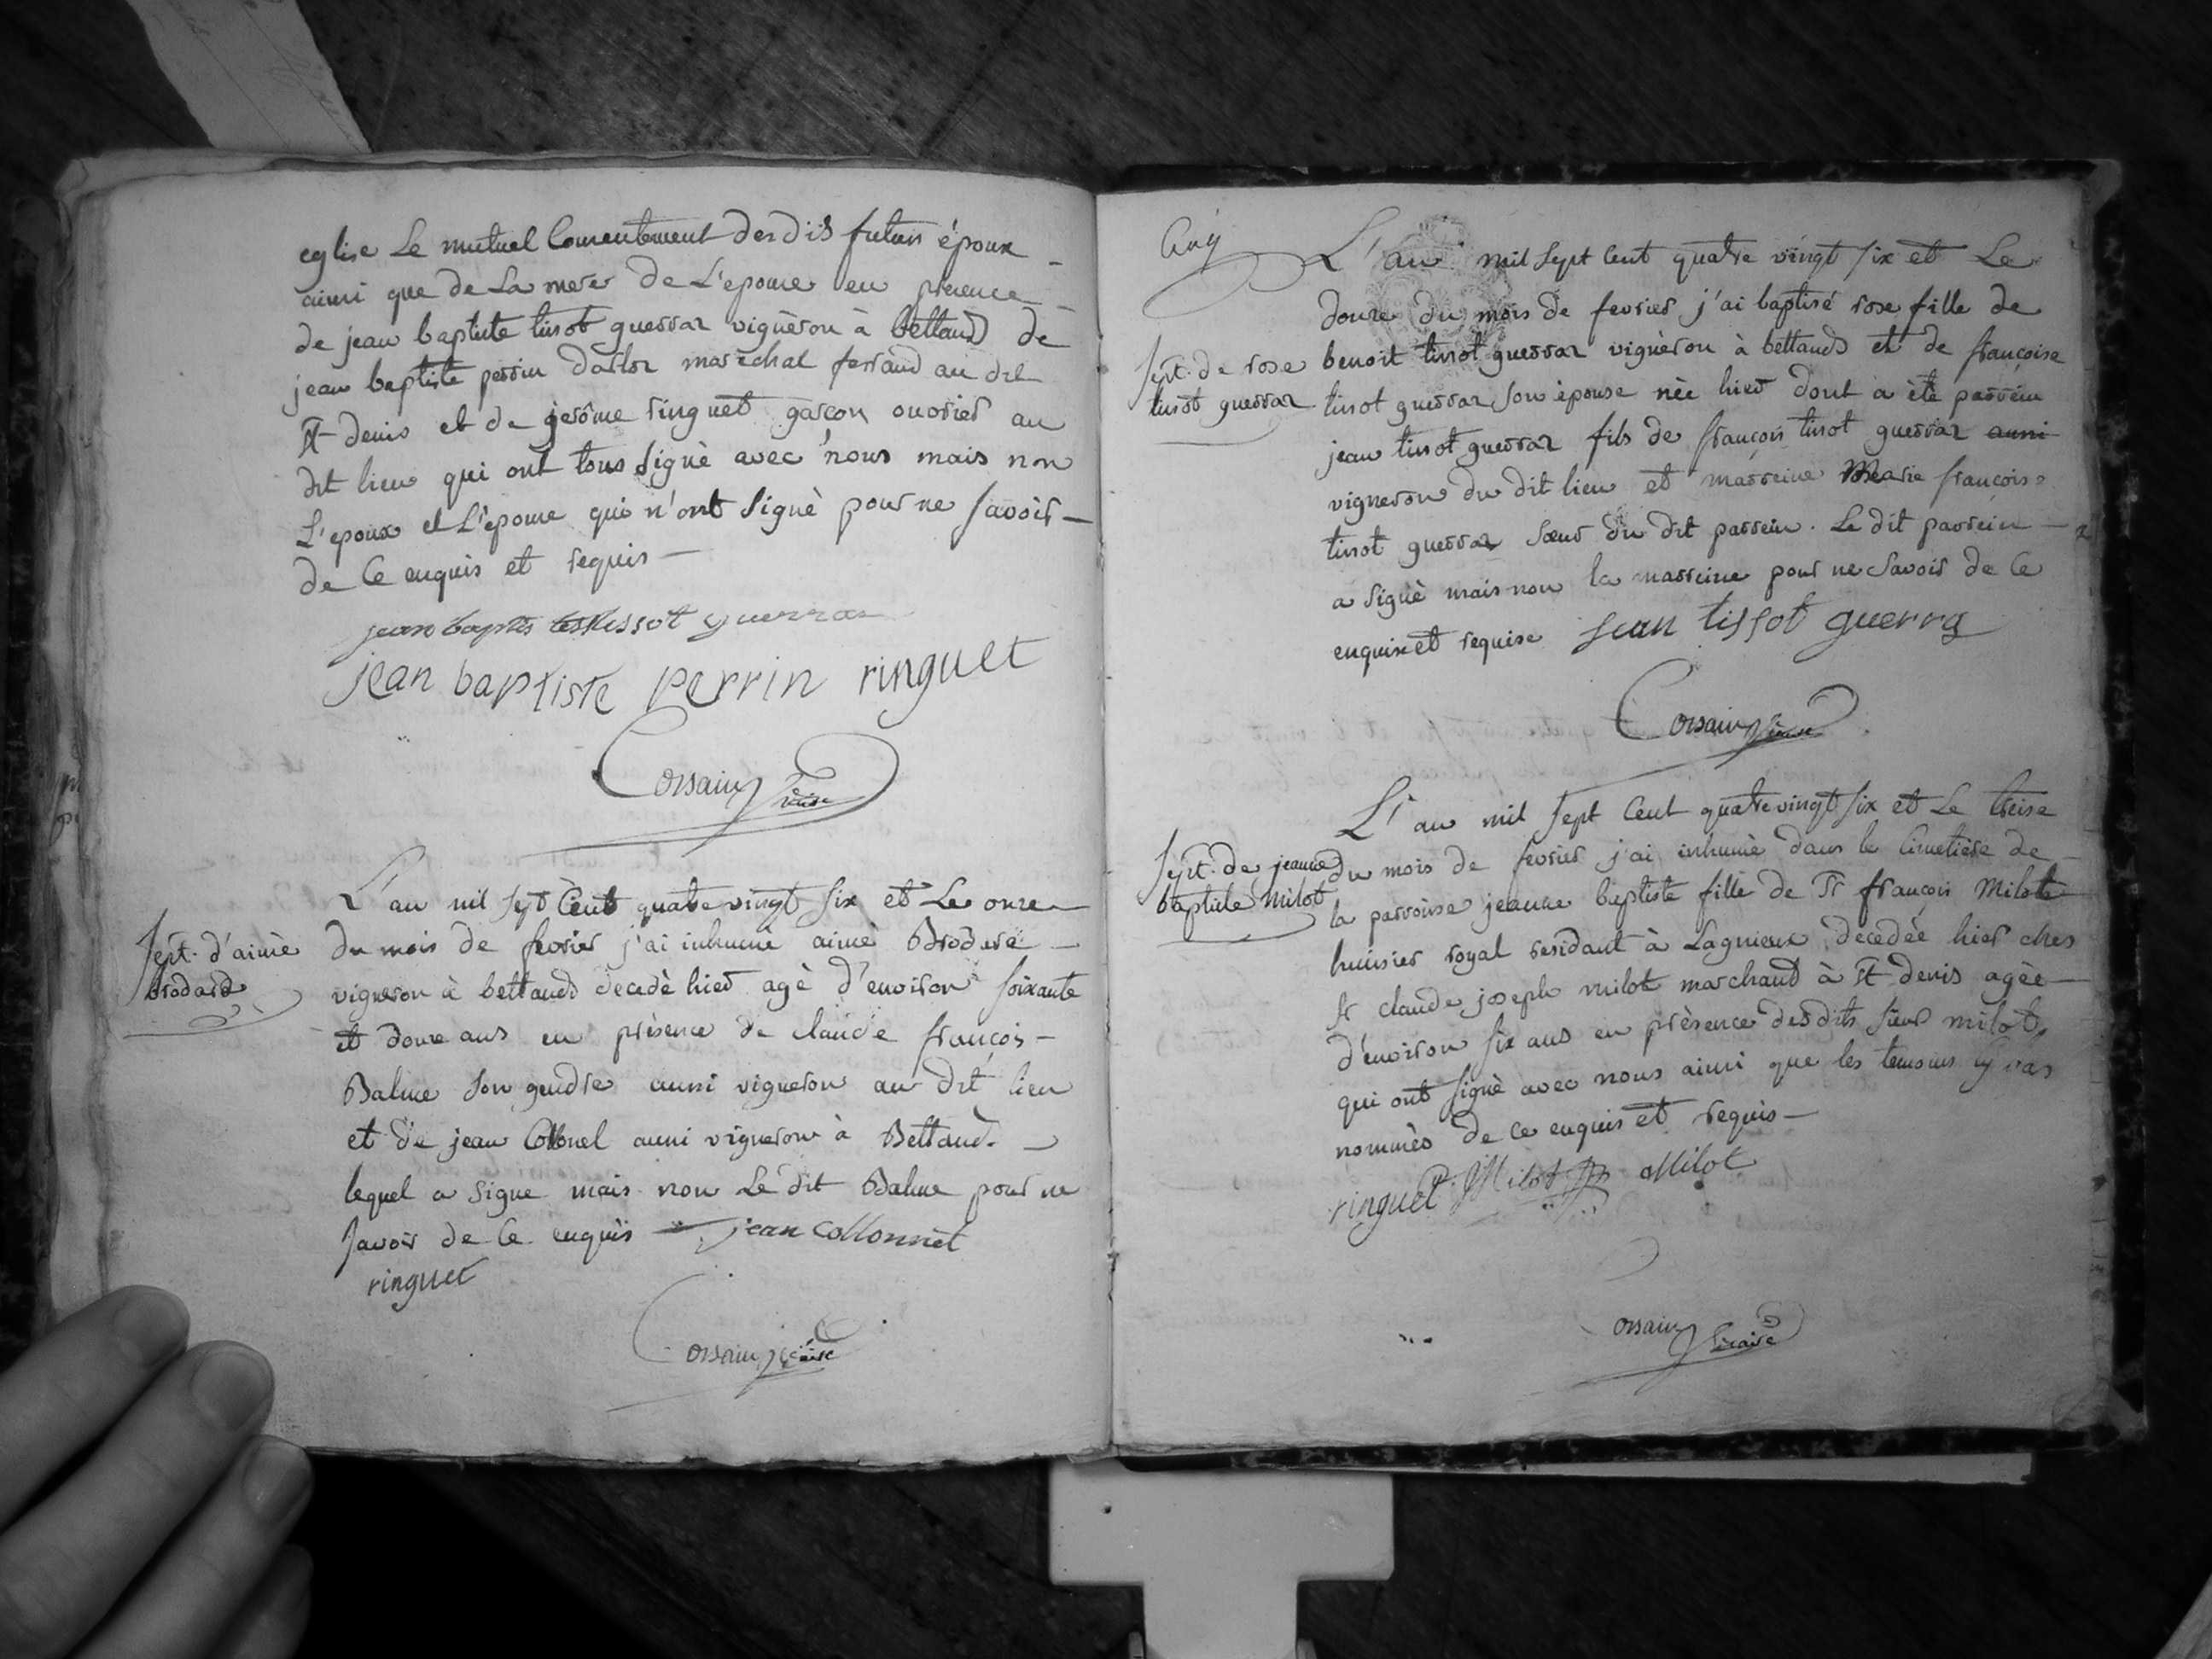 eglise Le mutuel Consentement desdits futurs époux
ainsi que de La mere de L'epouse en presence
de jean baptiste tissot guerraz vigneron à bettand de
jean baptiste perrin maréchal ferrand au dit
St denis et de jerôme ringuet garçon ouvrier au
dit lieu qui ont tous signè avec nous mais non
L'epoux et L'epouse qui n'ont signè pour ne savoir
de Ce enquis et requis
jean baptis tissot guerraz
jean baptiste perrin ringuet
Corsain vicaire
Sept. d'aimè
brodard
L'an mil sept Cent quatre vingt six et Le onze
du mois de fevrier j'ai inhumè aimè
vigneron à bettand decedè hier agè d'environ soixante
et douze ans en prèsence de claude françois
Balme son gendre aussi vigneron au dit lieu
et de jean Collonel aussi vigneron à Bettand.
lequel a signe mais non Le dit Balme pour ne
savoir de Ce enquis jean collonnet
ringuet
Corsain vicaire
L'an mil sept Cent quatre vingt six et Le
Sept. de rose
tissot guerraz
douze du mois de fevrier j'ai baptisé rose fille de
benoit tissot guerraz vignèron à bettand et de francoise
tissot guerraz son èpouse nèe hier dont a ètè parrein
jean tissot guerraz fils de françois tissot guerraz aussi
vigneron du dit lieu et marreine Marie françoise
tissot guerraz sœur du dit parrein. Le dit parrein
a signè mais non la marreine pour ne savoir de Ce
enquise et requise jean tissot guerra
Corsain vicaire
Sept. de jeanne
baptiste milot
L'an mil sept Cent quatre vingt six et Le treise
du mois de fevrier j'ai inhumè dans le Cimetière de
la parroisse jeanne baptiste fille de Sr françois Milot
huissier royal residant à Lagnieux decedèe hier ches
Sr claude joseph milot marchand à St denis agèe
d'environ six ans en prèsence desdits sieurs milot.
qui ont signè avec nous ainsi que les temoins
nommès de ce enquis et requis
ringuet Milot Milot
Corsain vicaire